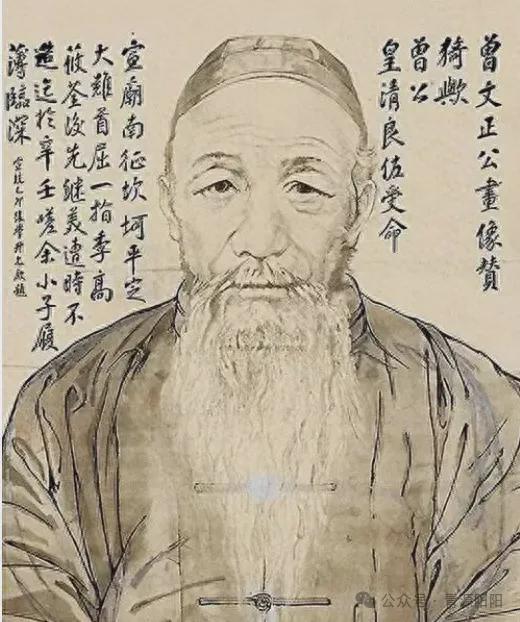 曾文正公畫像贊
猗歟
曾公
皇清良佐受命
宣廟南征坎坷平定
大難首屈一指季高
筱荃後先繼美遭時不
造迄於辛壬嗟余小子履
薄臨深
宣統乙卯
公众号